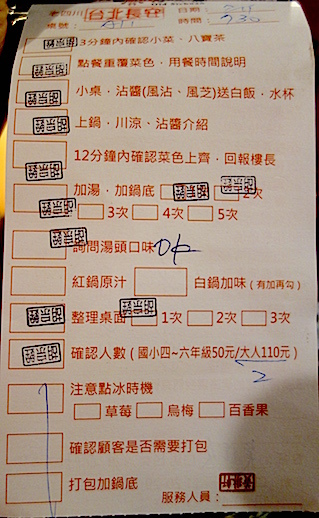 老四川 台北長安 日期：
桌號：A11 時間：730
3分鐘內確認小菜、八寶茶
點餐重覆菜色，用餐時間說明
小桌，沾醬(風沾、風芝)送白飯，水杯
上鍋，川涼、沾醬介紹
12分鐘內確認菜色上齊，回報樓長
加湯，加鍋底 2次
3次 4次 5次
詢問湯頭口味 ok
紅鍋原汁 白鍋加味(有加再勾)
整理桌面 1次 2次 3次
確認人數(國小四~六年級50元/大人110元)
2
注意點冰時機
草莓 烏梅 百香果
確認顧客是否需要打包
打包加鍋底
服務人員：